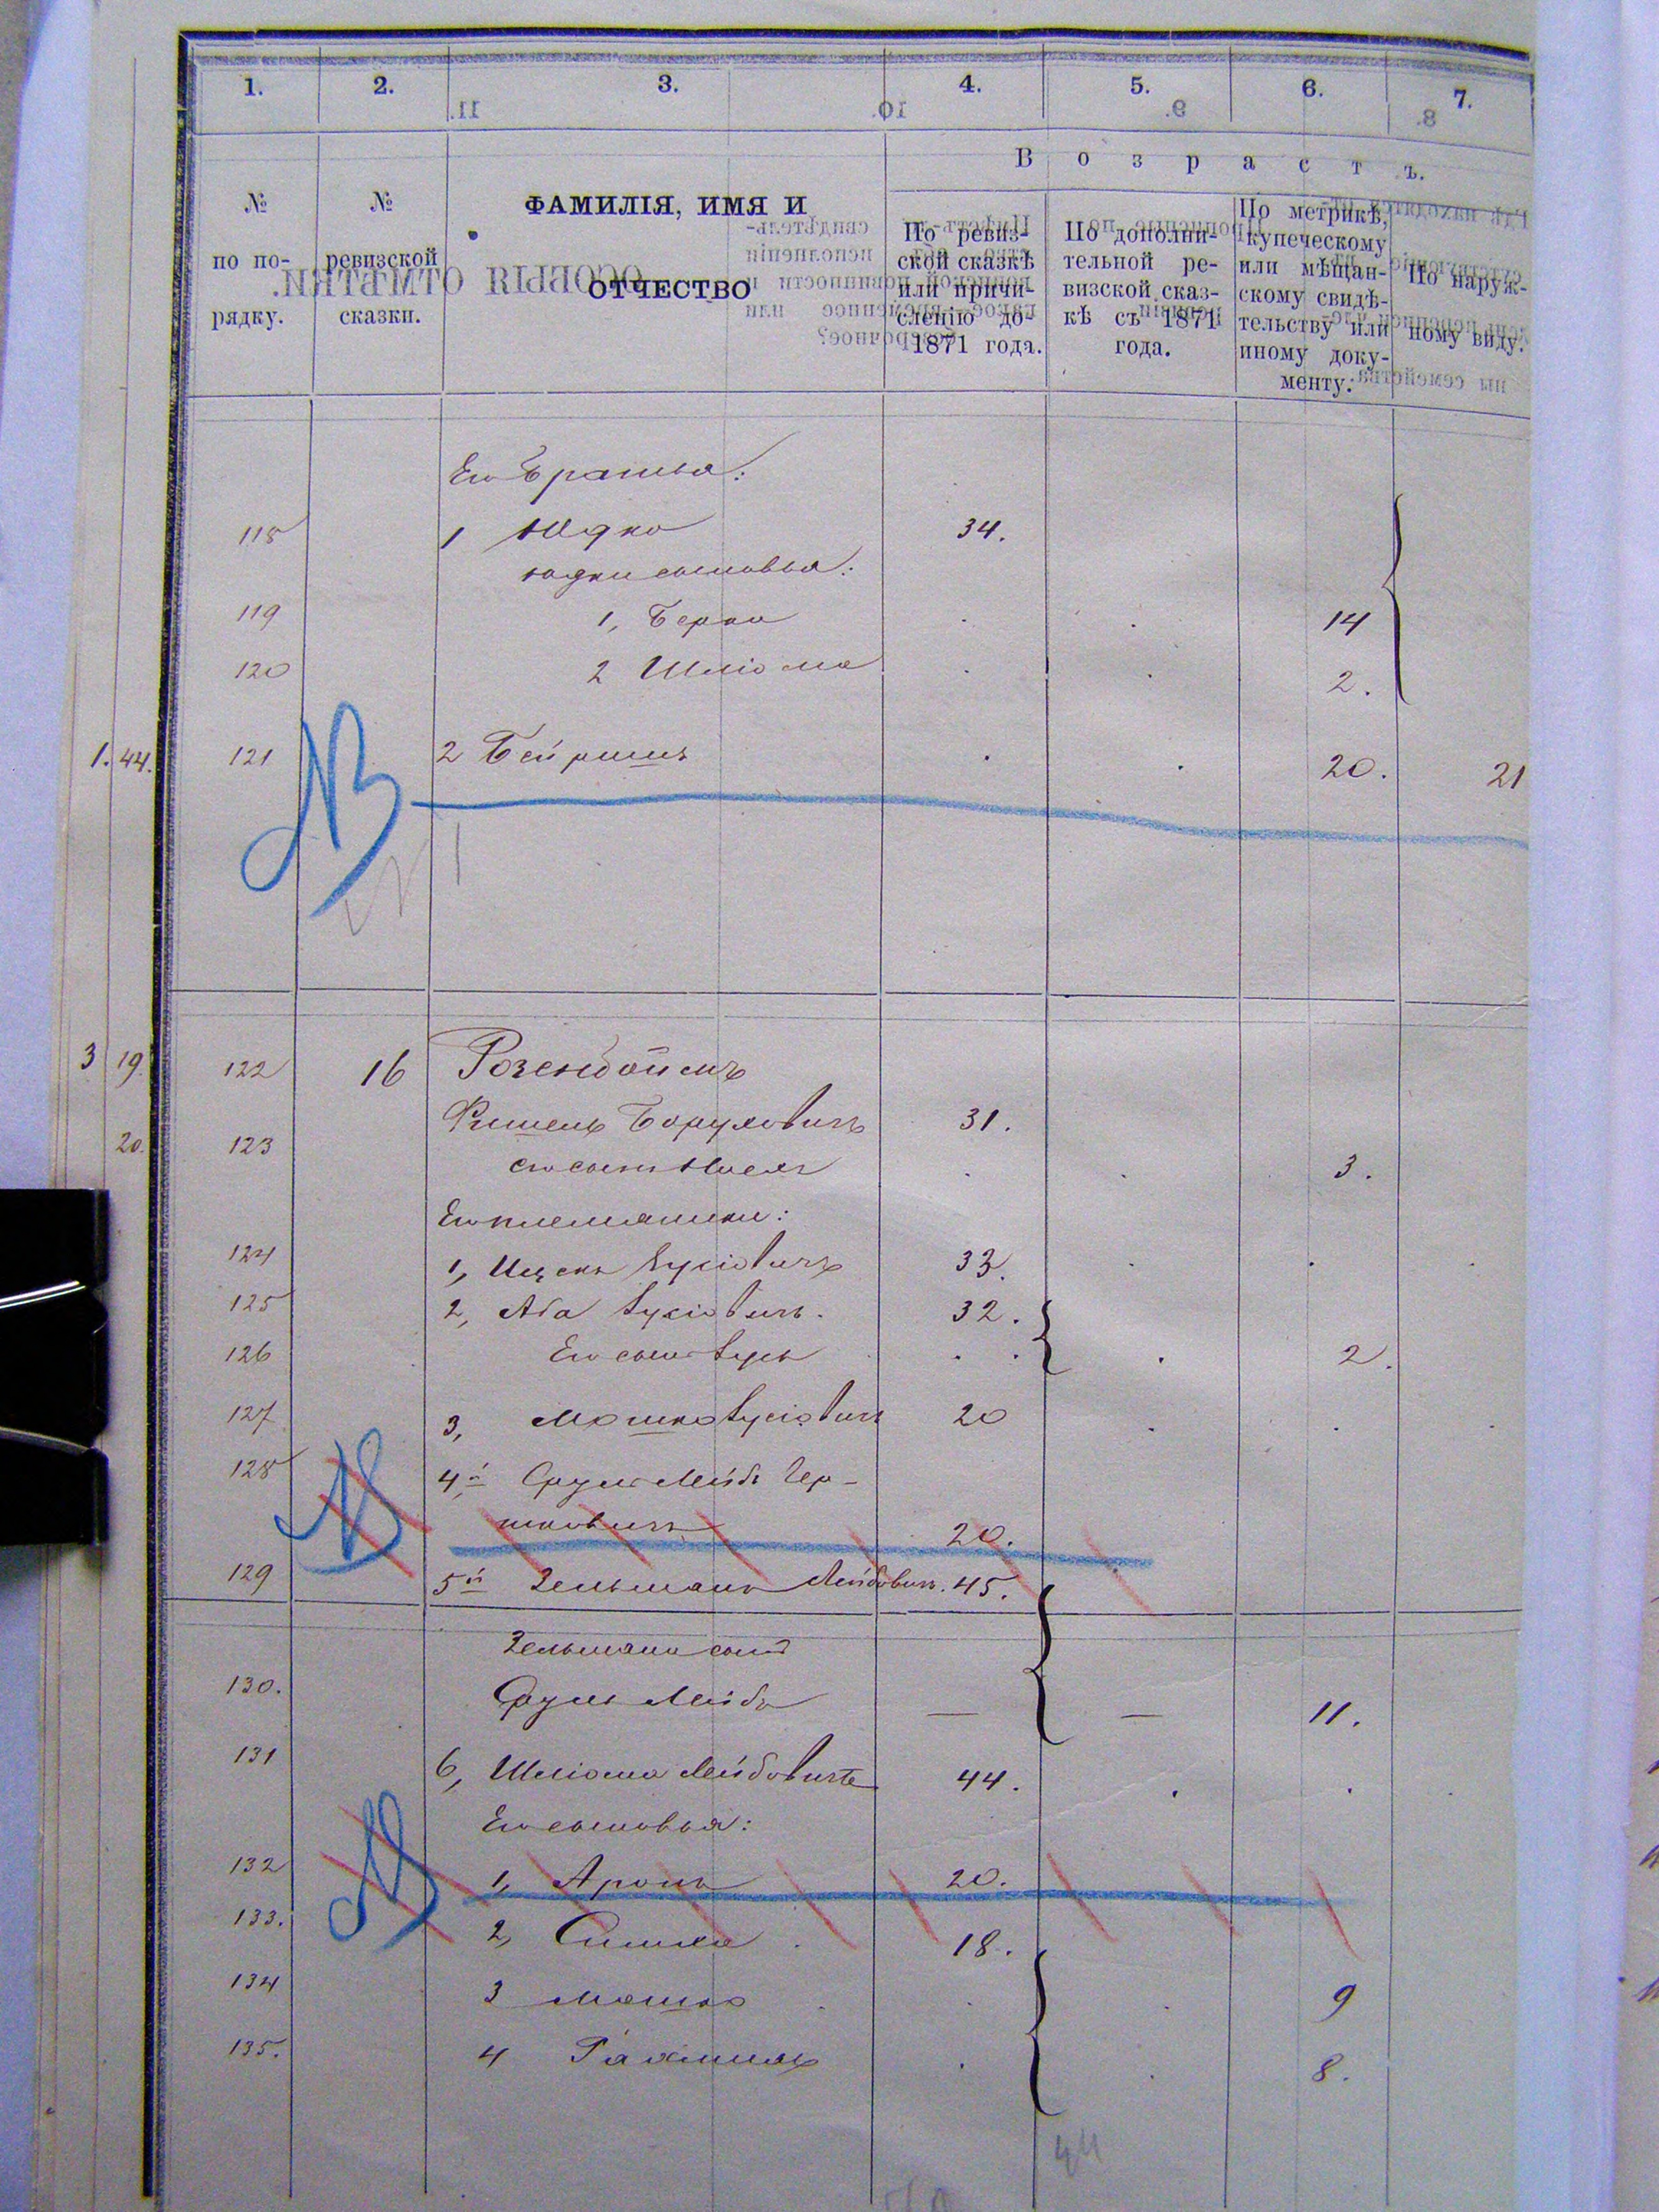 1. 2. 3. 4. 5. 6. 7.
11. 10. 9. 8.
Возрастъ.
№ по порядку.
№ ревизской сказки.
ФАМИЛІЯ, ИМЯ И ОТЧЕСТВО
По ревизской сказкѣ или причисленію до 1871 года.
По дополнительной ревизской сказкѣ съ 1871 года.
По метрикѣ, купеческому или мѣщанскому свидѣтельству или иному документу.
По наружному виду.
ОСОБЫЯ ОТМѢТКИ.
Его братья:
118 1 Юдко 34.
Юдки сыновья:
119 1, Берко 14
120 2 Шліома 2.
1. 44. 121 2 Бейришъ 20. 21
3 19. 122 16 Розенбоймъ
Фишель Боруховичъ 31.
20. 123 его сынъ 3.
Его племянники:
124 1, Ицекъ Зусіовичъ 33.
125 2, Аба Зусіовичъ. 32.
126 Его сынъ Зусь 2.
127 3, Мошко Зусіовичъ 20
128 4й Сруль Лейбъ Гершковичъ 20.
129 5й Зельманъ Лейбовичъ. 45.
Зельмана сынъ
130. Сруль Лейбъ — — 11.
131 6, Шліома Лейбовичъ 44.
Его сыновья:
132 1, Аронъ 20.
133. 2, Симха 18.
134 3 Мошко 9
135. 4 Рахмиль 8.
44